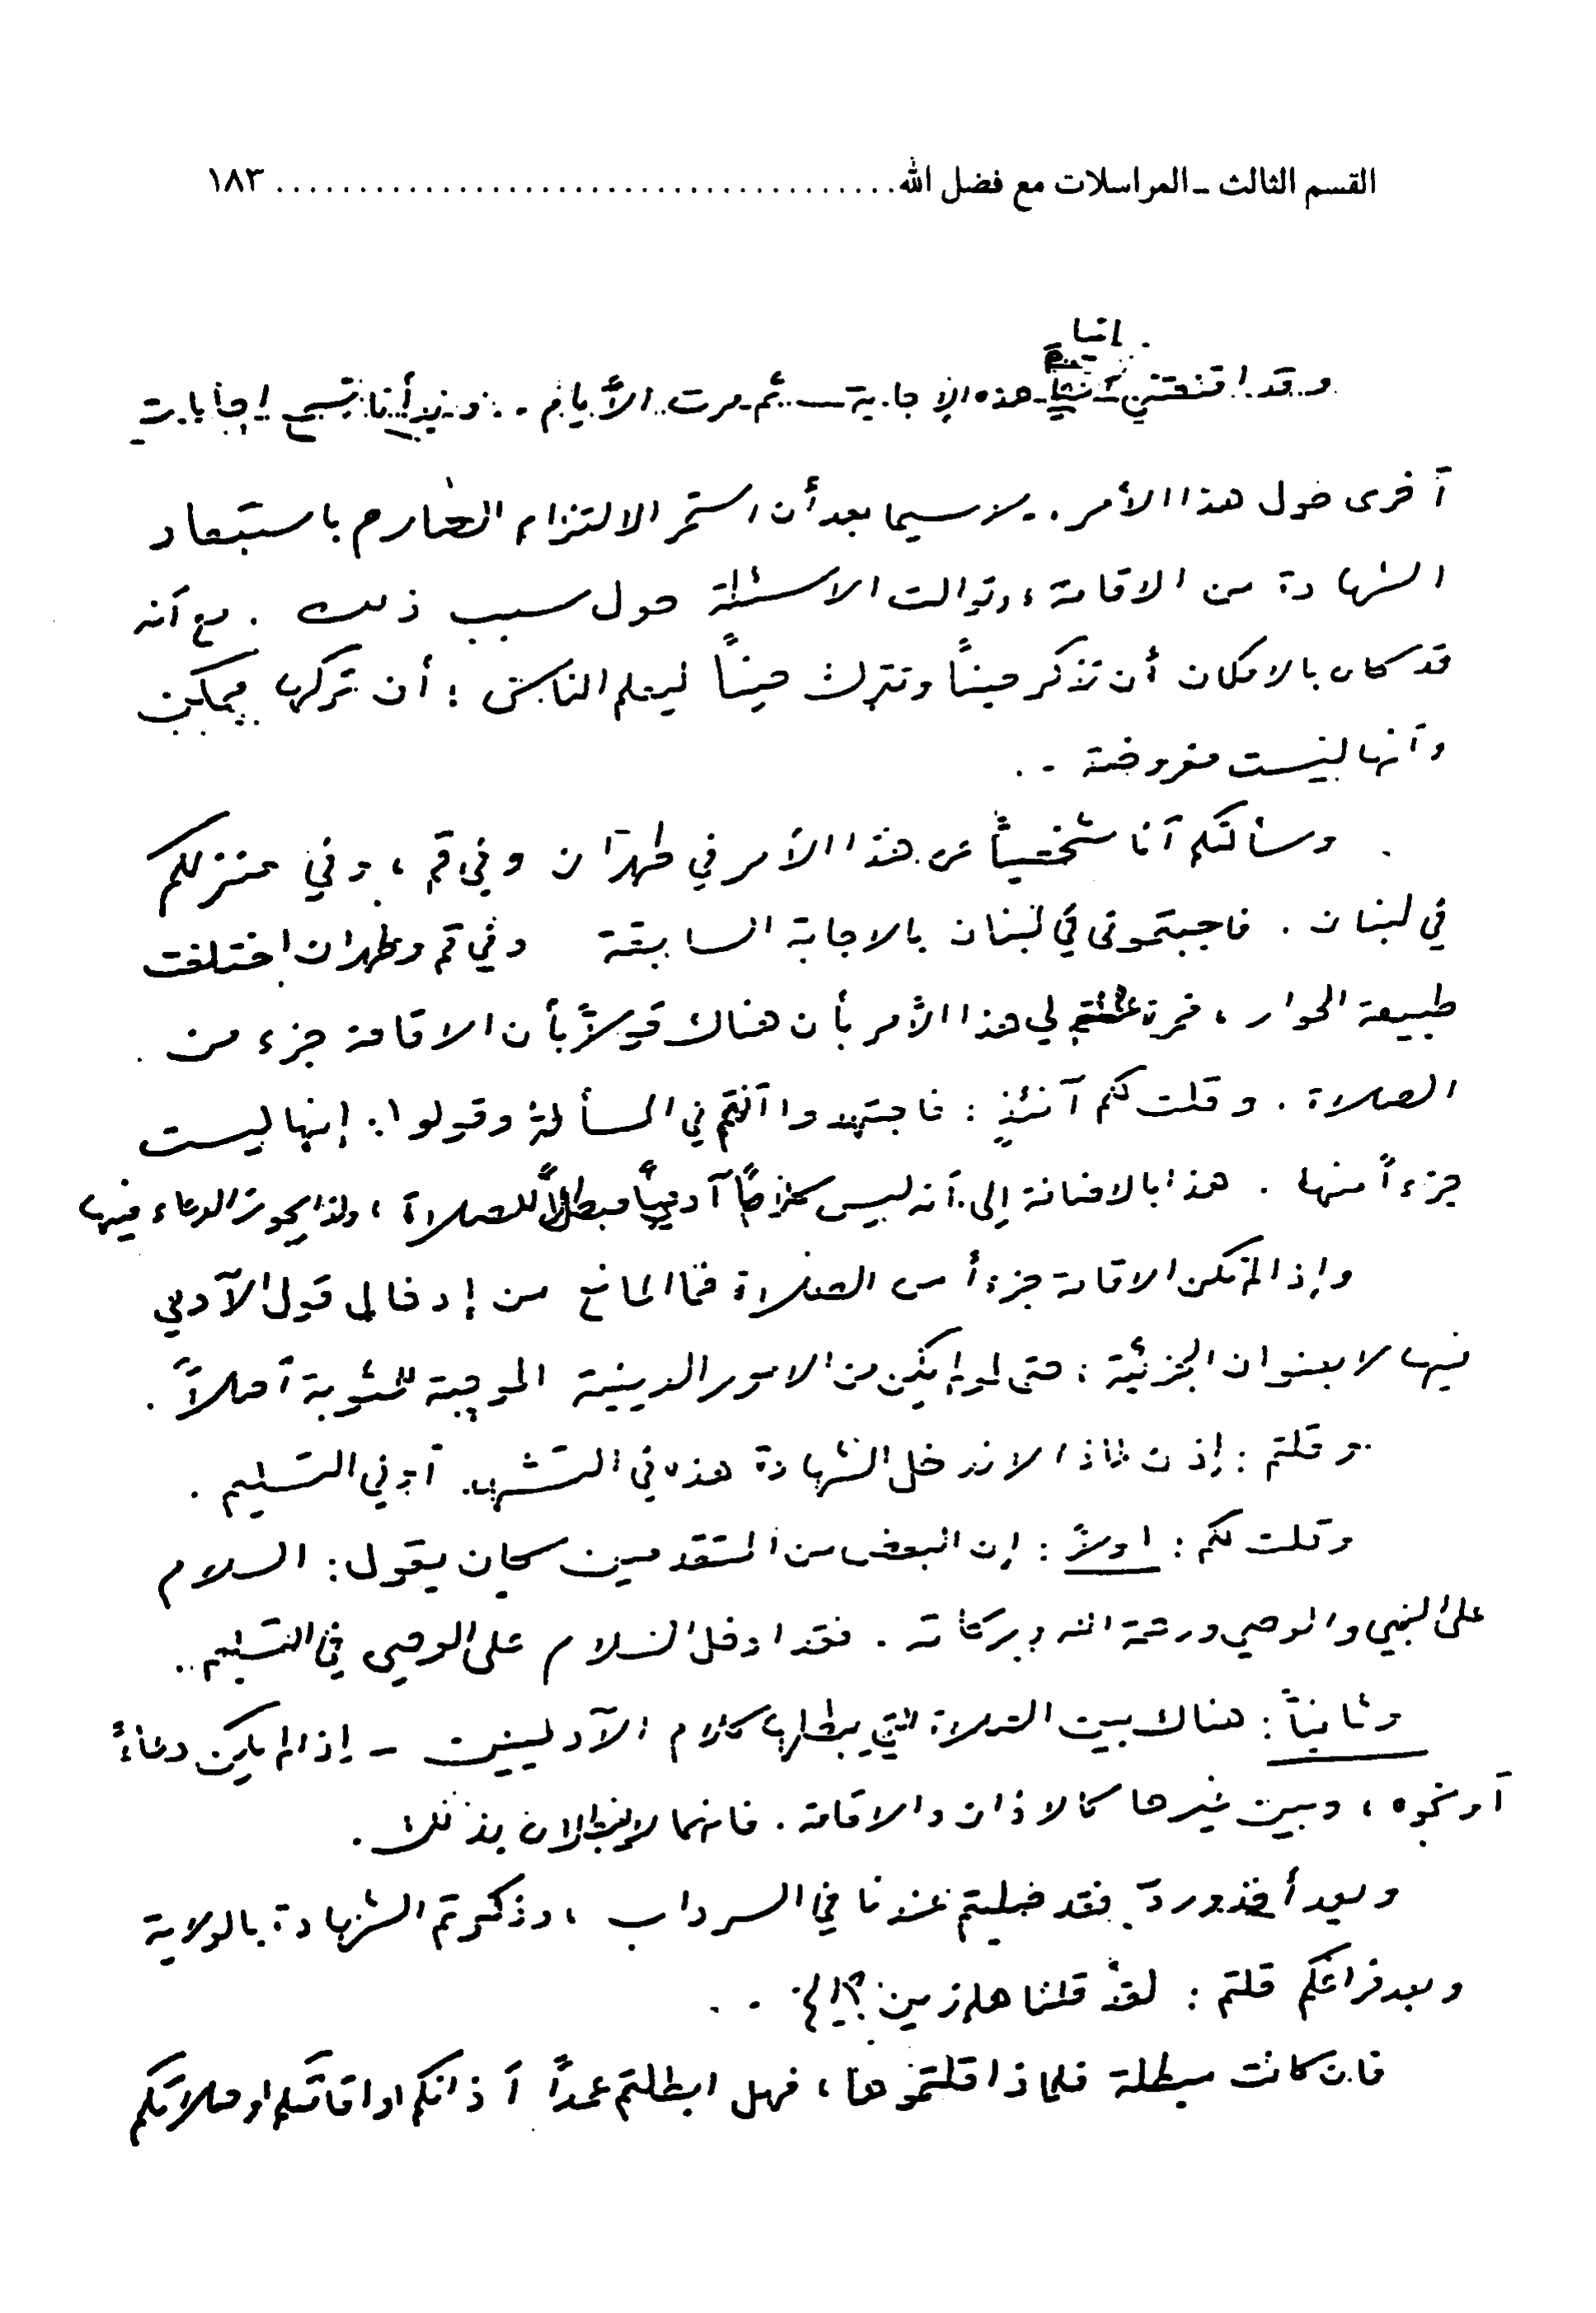 القسم الثالث ـ المراسلات مع فضل الله ........................................ ١٨٣
إننا
وقد اقنعتني هذه الإجابة ــ ثم مرت الأيام .. وبدأنا نسمع إجابات
أخرى حول هذا الأمر .. لا سيما بعد أن استمر الالتزام الصارم باستبعاد
الشهادة من الاقامة ، وتوالت الاسئلة حول سبب ذلك . مع أنه
قد كان بالامكان أن تذكر حيناً وتترك حيناً ليعلم الناس : أن تركها ممكن
وأنها ليست مفروضة ..
وسألتكم أنا شخصياً عن هذا الأمر في طهران وفي قم ، وفي منزلكم
في لبنان . فاجبتموني في لبنان بالاجابة السابقة وفي قم وطهران اختلفت
طبيعة الحوار ، فمرة عللتم لي هذا الأمر بأن هناك قولاً بأن الاقامة جزء من
الصلاة . وقلت لكم آنئذٍ : فاجتهدوا أنتم في المسألة وقولوا : إنها ليست
جزءاً منها . هذا بالاضافة إلى أنه ليس كلاماً آدمياً مبطلاً للصلاة ، ولذا يجوز الدعاء فيها
وإذا لم تكن الاقامة جزءاً من الصلاة فما المانع من إدخال قول الآدمي
فيها لا بعنوان الجزئية ، حتى لو لم يكن من الامور الدينية الموجبة للمثوبة أصلاً .
وقلتم : إذن لماذا لا ندخل الشهادة هذه في التشهد أو في التسليم .
وقلت لكم : اولاً : إن البعض من المتقدمين كان يقول : السلام
على النبي والوصي ورحمة الله وبركاته . فقد ادخل السلام على الوصي في التسليم ..
وثانياً : هناك بين الصلاة التي يبطلها كلام الآدميين ــ إذا لم يكن دعاءً
أو نحوه ، وبين غيرها كالاذان والاقامة . فانهما لا يبطلان بذلك .
وبعد أخذ ورد فقد صليتم عندنا في السرداب ، وذكرتم الشهادة بالولاية
وبعد فراغكم قلتم : لقد قلنا هلم زين ؟! الخ ..
فان كانت مبطلة فلماذا قلتموها ، فهل ابطلتم عمداً أذانكم او اقامتكم او صلاتكم